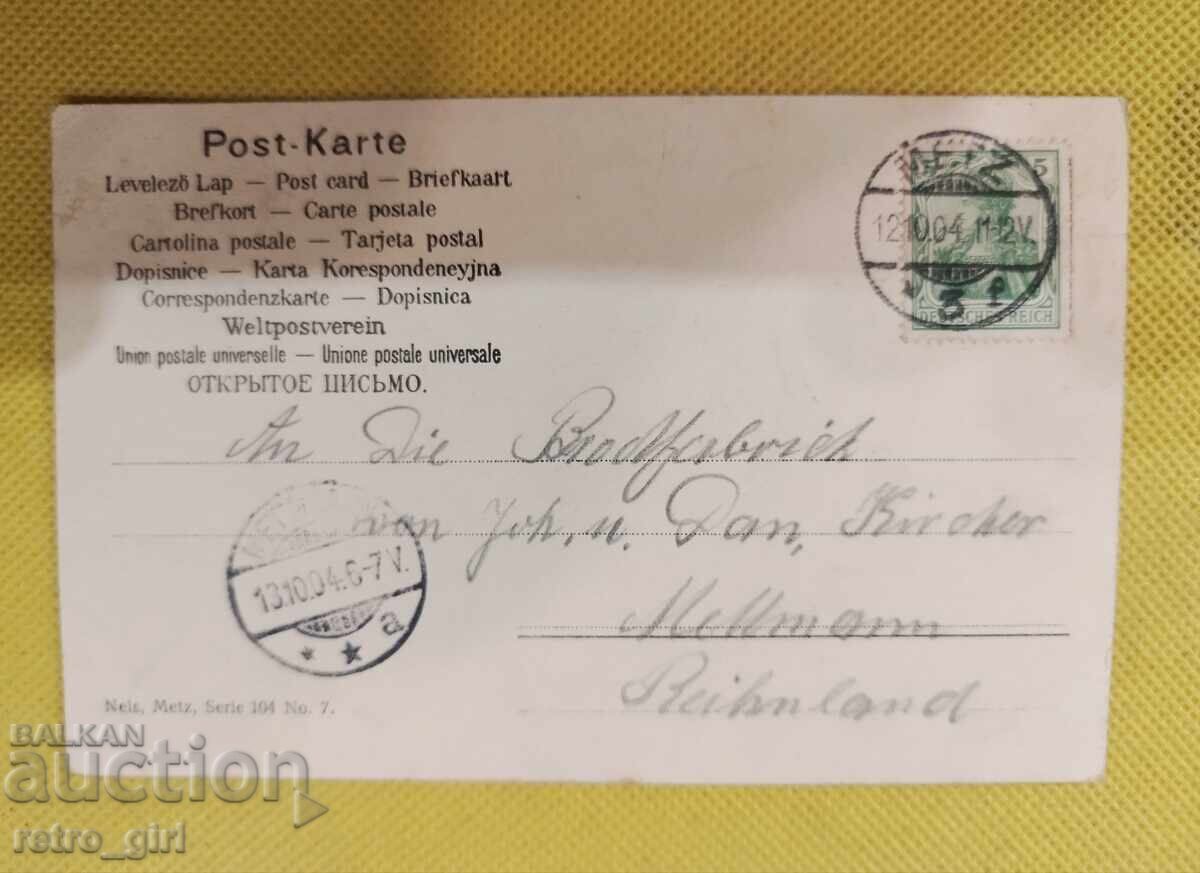 Post-Karte
Levelező Lap — Post card — Briefkaart
Brefkort — Carte postale
Cartolina postale — Tarjeta postal
Dopisnice — Karta Korespondeneyjna
Correspondenzkarte — Dopisnica
Weltpostverein
Union postale universelle — Unione postale universale
ОТКРЫТОЕ ПИСЬМО.
METZ
12.10.04. 11-12V.
3 f
5
DEUTSCHES REICH
An Die Brodfabrick
van Joh. u. Dan. Kircher
Mettmann
Reihnland
13.10.04. 6-7 V.
a
Nels, Metz, Serie 104 No. 7.
BALKAN
auction
retro_girl